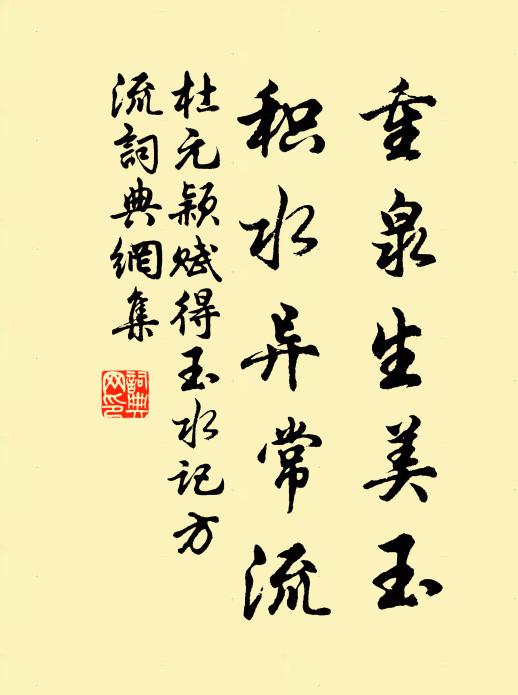 重泉生美玉
积水异常流
杜元颖赋得玉水记方
流詞典網集
詞典网印